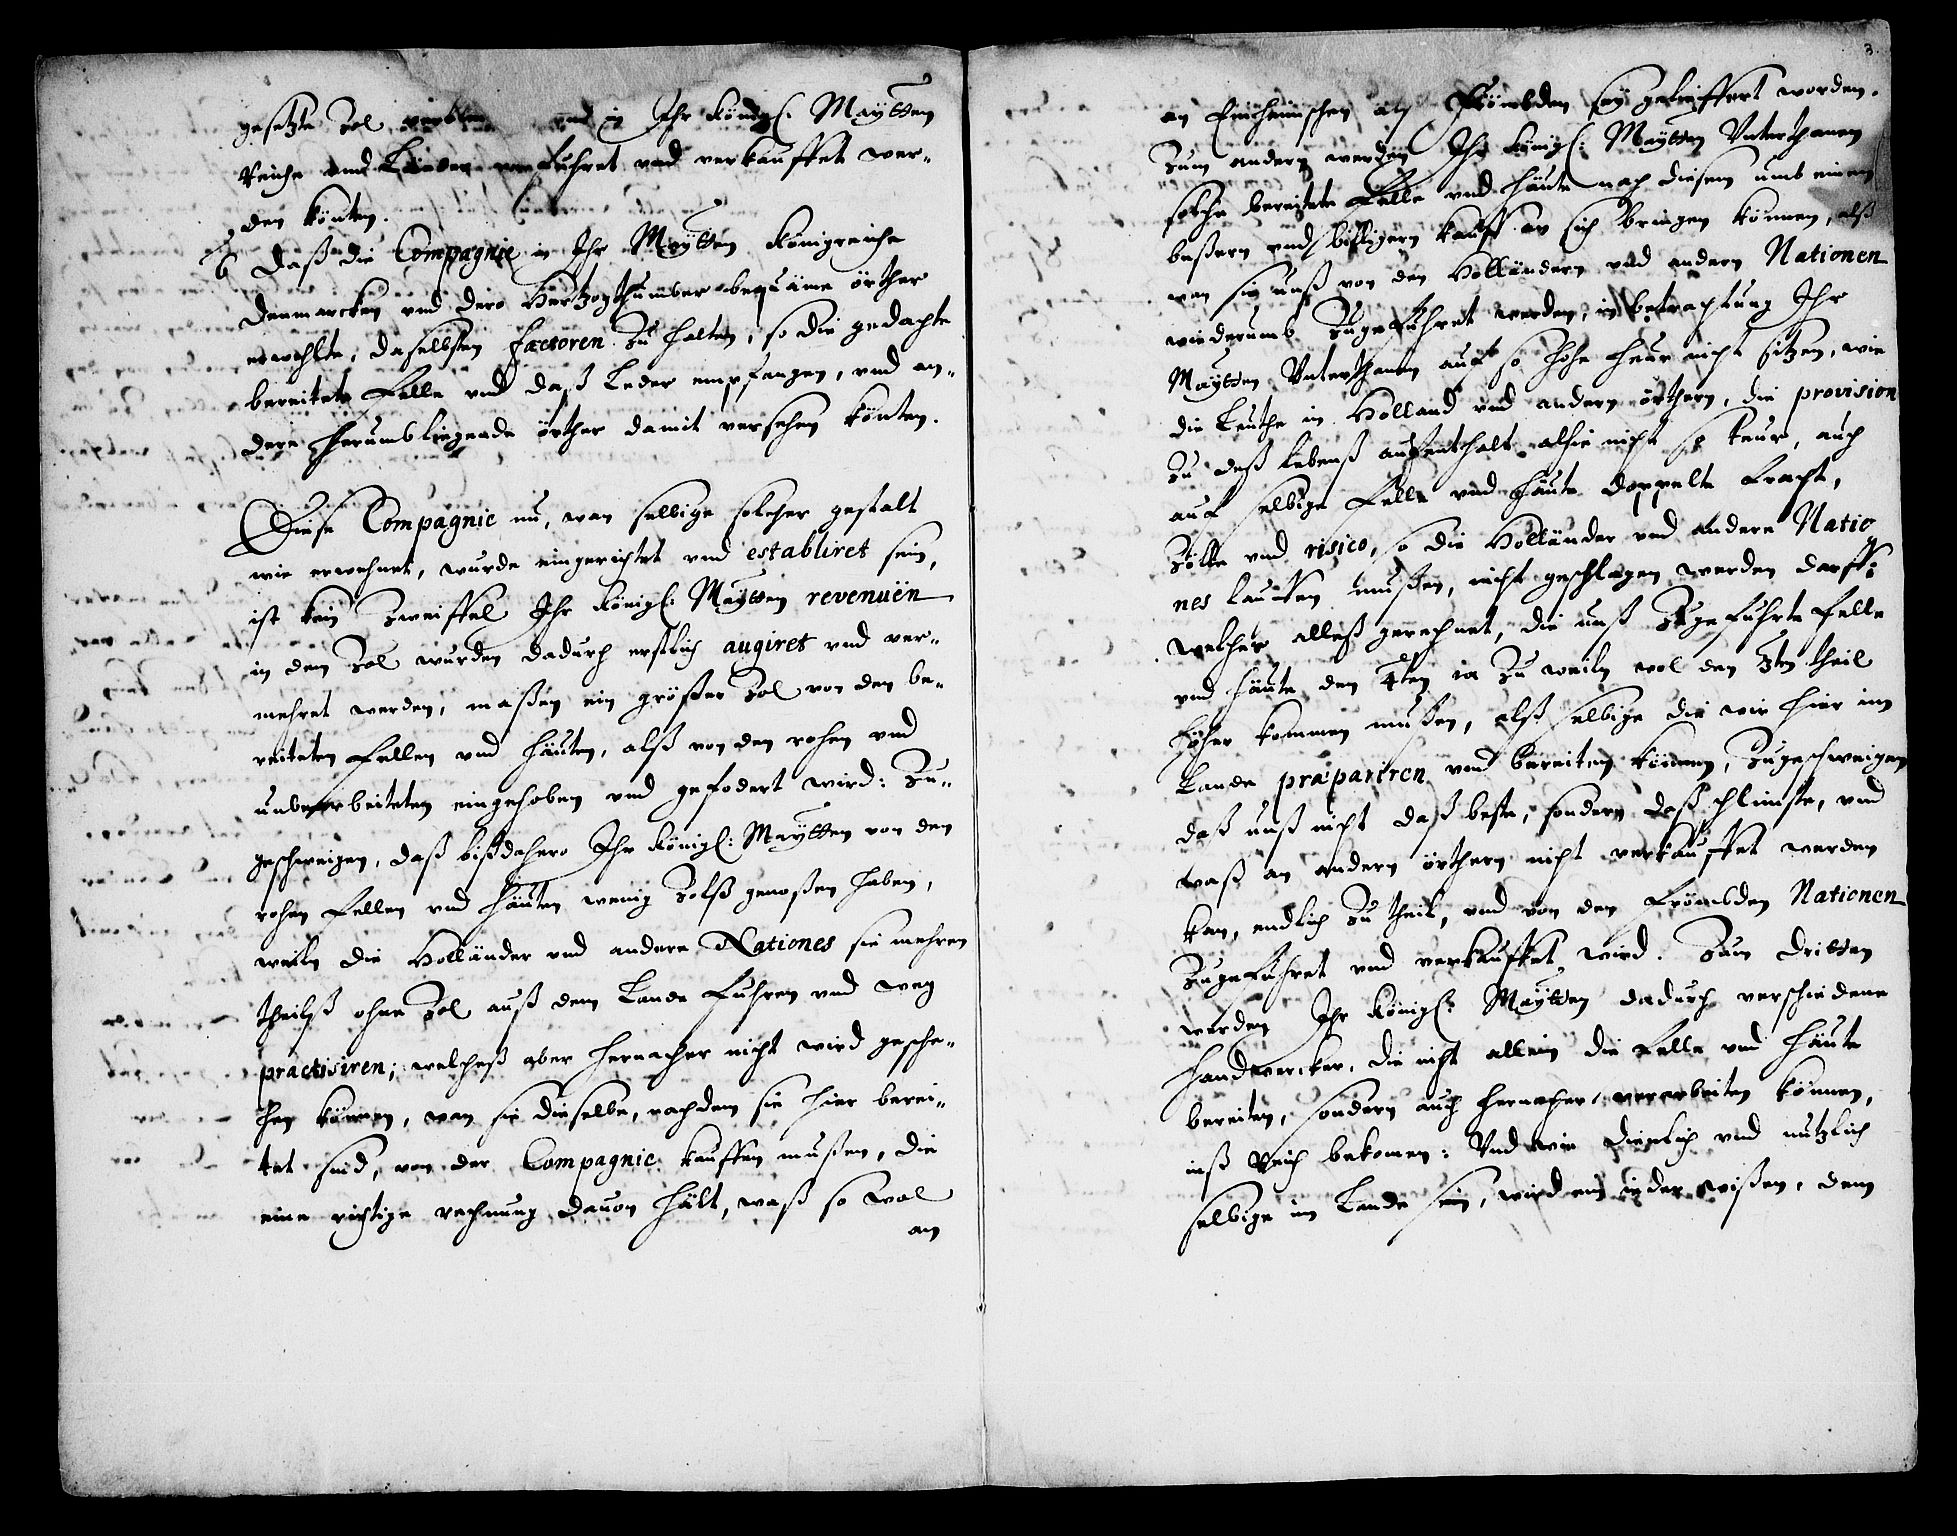 gesetzte Zol und in Ihr Königl: Maÿtten
Reiche und Länder verfuhret und verkauffet wer-
den könten.
6 Daß die Compagnie in Ihr Maÿtten Königreiche
Denmarcken und dero Hertzogthumber bequäme örther
erwehlte, daselbsten factoren zu halten, so die gedachte
bereitete Felle und daß Leder empfangen, und an-
dere herumbliegende örther damit versehen könten.
Diese Compagnie nu, wan selbige solcher gestalt
wie erwehnet, wurde eingerichtet und establiret sein,
ist kein Zweiffel Ihr Königl: Maÿtten revenuën
in dem Zol wurden dadurch erstlich augiret und ver-
mehret werden, maßen ein größer Zol von den be-
reiteten Fellen und häuten, alß von den rohen und
unverarbeiteten eingehoben und gefodert wird: Zu-
geschweigen, daß bißdahero Ihr Königl: Maÿtten von den
rohen Fellen und häuten wenig Zolß genoßen haben,
weiln die Holländer und andere Nationes sie mehren
theilß ohne Zol auß dem Lande fuhren und weg
practisiren; welcheß aber hernacher nicht wird gesche-
hen können, wan sie dieselbe, nachdem sie hier berei-
tet sind, von der Compagnie kauffen mußen, die
eine richtige rechnung dauon hält, waß so wol
an
3.
an Einheimischen alß Frömbden seÿ gelieffert worden.
Zum andern werden Ihr Königl: Maÿtten Unterthanen
solche bereitete Felle und häute nach diesem umb einem
beßern und billigern kauff an sich bringen können, alß
wan sie unß von den Holländern und andern Nationen
wiederumb zugefuhret werden, in betrachtung Ihr
Maÿtten Unterthanen auff so hohe heur nicht sitzen, wie
die Leuthe in Holland und andern örthern, die provision
zu deß lebenß auffenthalt alhie nicht so teur, auch
auf selbige Felle und häute doppelte Fracht,
Zölle und risico, so die Holländer und andere Natio
nes lauffen mußen, nicht geschlagen werden darff:
welcheß alleß gerechnet, die unß zugefuhrte Felle
und häute den 4ten ia zu weiln wol den 3ten theil
höher kommen mußen, alß selbige die wir hier im
Lande præpariren und bereiten können, Zugeschweigen
daß unß nicht daß beste, sondern daß schlimste, und
waß an andern örthern nicht verkauffet werden
kan, endlich zu theil, und von den Frömbden Nationen
zugefuhret und verkauffet wird. Zum dritten
werden Ihr Königl: Maÿtten dadurch verschiedene
handwercker, die nicht allein die Felle und häute
bereiten, sondern auch hernacher verarbeiten können,
inß Reich bekomen: Und wie dienlich und nutzlich
selbige im Lande sein, wird ein ieder wißen, dem